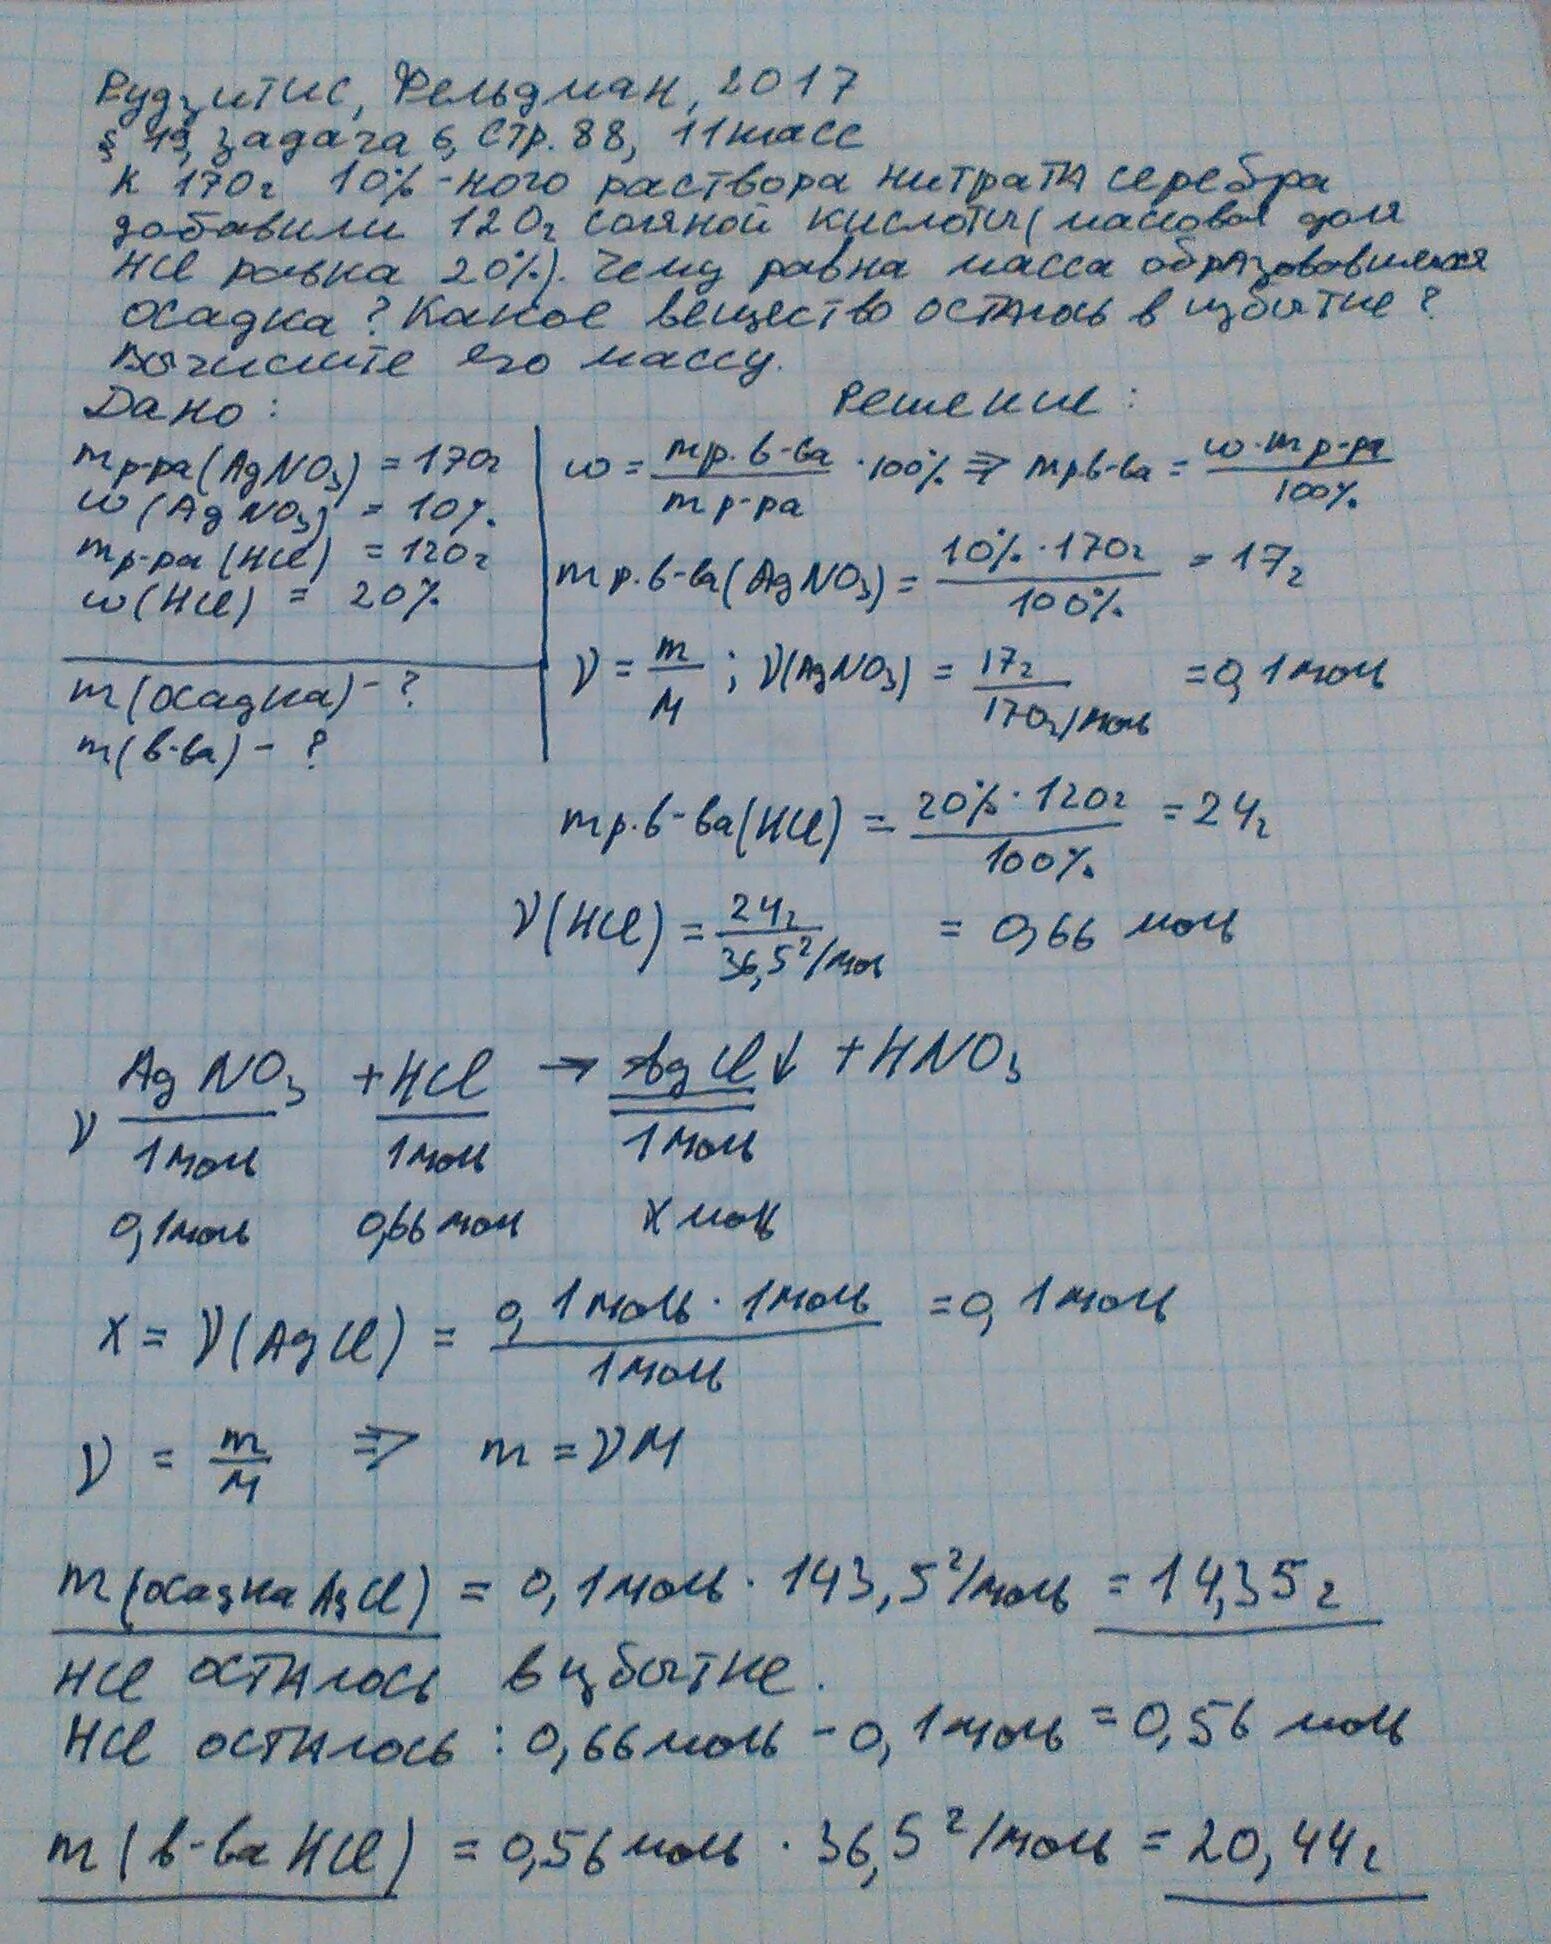 Рудзитис, Фельдман, 2017
§ 19, задача 6, стр. 88, 11 класс
К 170г 10%-ного раствора нитрата серебра
добавили 120г соляной кислоты (массовая доля
HCl равна 20%). Чему равна масса образовавшегося
осадка? Какое вещество осталось в избытке?
Вычислите его массу.
Дано:
Решение:
m р-ра (AgNO3) = 170г
ω (AgNO3) = 10%
m р-ра (HCl) = 120г
ω (HCl) = 20%
m (осадка) - ?
m (в-ва) - ?
ω = m р. в-ва / m р-ра · 100% ⇒ m р в-ва = ω · m р-ра / 100%
m р. в-ва (AgNO3) = 10% · 170г / 100% = 17г
ν = m / M ; ν(AgNO3) = 17г / 170г/моль = 0,1 моль
m р. в-ва (HCl) = 20% · 120г / 100% = 24г
ν (HCl) = 24г / 36,5 г/моль = 0,66 моль
AgNO3 + HCl → AgCl↓ + HNO3
ν 1 моль 1 моль 1 моль
0,1 моль 0,66 моль x моль
x = ν (AgCl) = 0,1 моль · 1 моль / 1 моль = 0,1 моль
ν = m / M ⇒ m = νM
m (осадка AgCl) = 0,1 моль · 143,5 г/моль = 14,35 г
HCl осталось в избытке.
HCl осталось : 0,66 моль - 0,1 моль = 0,56 моль
m (в-ва HCl) = 0,56 моль · 36,5 г/моль = 20,44 г